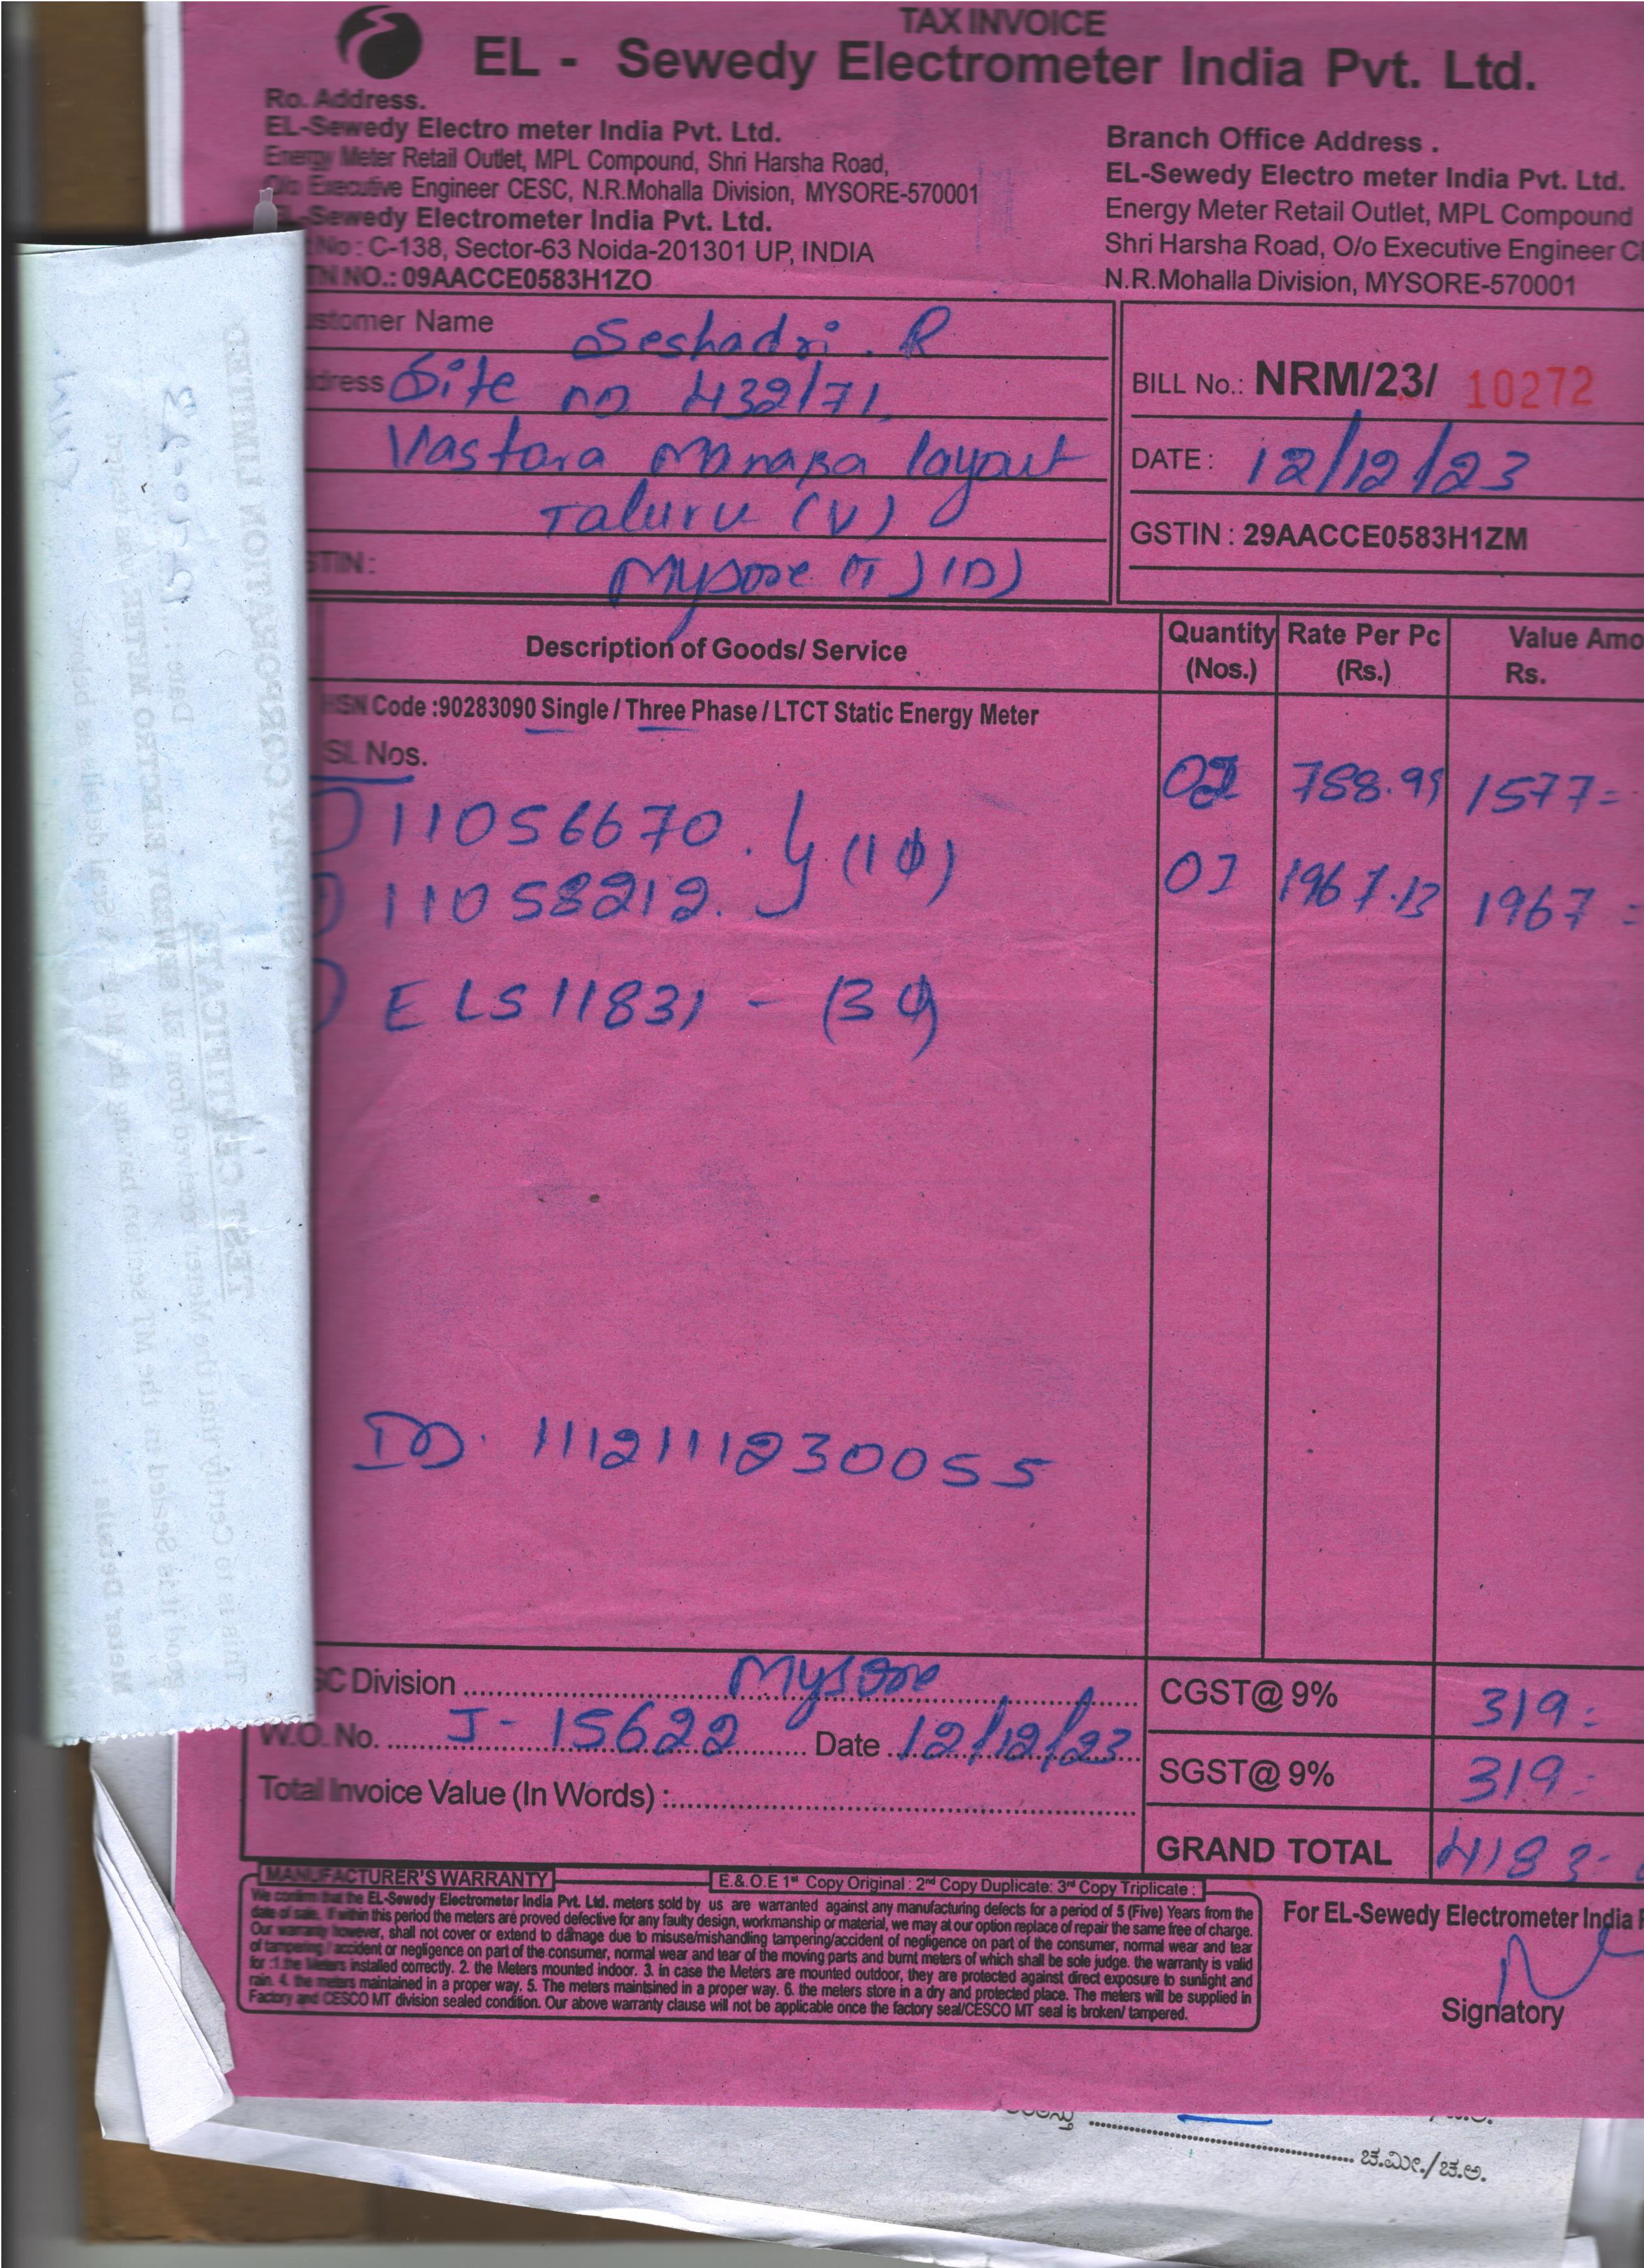 TAX INVOICE
EL - Sewedy Electrometer India Pvt. Ltd.
Ro. Address.
EL-Sewedy Electro meter India Pvt. Ltd.
Energy Meter Retail Outlet, MPL Compound, Shri Harsha Road,
O/o Executive Engineer CESC, N.R.Mohalla Division, MYSORE-570001
EL-Sewedy Electrometer India Pvt. Ltd.
No : C-138, Sector-63 Noida-201301 UP, INDIA
TN NO.: 09AACCE0583H1ZO
Branch Office Address .
EL-Sewedy Electro meter India Pvt. Ltd.
Energy Meter Retail Outlet, MPL Compound
Shri Harsha Road, O/o Executive Engineer
N.R.Mohalla Division, MYSORE-570001
stomer Name Seshadri . R
dress Site no 432/71,
Vastara Manasa layout
Taluru (V)
STIN : Mysore (T) (D)
BILL No.: NRM/23/ 10272
DATE : 12/12/23
GSTIN : 29AACCE0583H1ZM
Description of Goods/ Service Quantity (Nos.) Rate Per Pc (Rs.) Value Amo Rs.
HSN Code :90283090 Single / Three Phase / LTCT Static Energy Meter
Sl. Nos.
11056670. 02 788.99 1577=
(1Φ)
11058212. 01 1967.13 1967 =
ELS11831 - (3Φ)
ID. 111211230055
SC Division Mysore
W.O. No. J- 15622 Date 12/12/23
Total Invoice Value (In Words) :
CGST@ 9% 319=
SGST@ 9% 319=
GRAND TOTAL 4183=
MANUFACTURER'S WARRANTY E.& .O.E 1st Copy Original : 2nd Copy Duplicate: 3rd Copy Triplicate :
We confirm that the EL-Sewedy Electrometer India Pvt. Ltd. meters sold by us are warranted against any manufacturing defects for a period of 5 (Five) Years from the
date of sale. If within this period the meters are proved defective for any faulty design, workmanship or material, we may at our option replace of repair the same free of charge.
Our warranty however, shall not cover or extend to damage due to misuse/mishandling tampering/accident of negligence on part of the consumer, normal wear and tear
of tampering / accident or negligence on part of the consumer, normal wear and tear of the moving parts and burnt meters of which shall be sole judge. the warranty is valid
for :1.the Meters installed correctly. 2. the Meters mounted indoor. 3. in case the Meters are mounted outdoor, they are protected against direct exposure to sunlight and
rain. 4. the meters maintained in a proper way. 5. The meters maintsined in a proper way. 6. the meters store in a dry and protected place. The meters will be supplied in
Factory and CESCO MT division sealed condition. Our above warranty clause will not be applicable once the factory seal/CESCO MT seal is broken/ tampered.
For EL-Sewedy Electrometer India
Signatory
ಚ.ಮೀ./ಚ.ಅ.